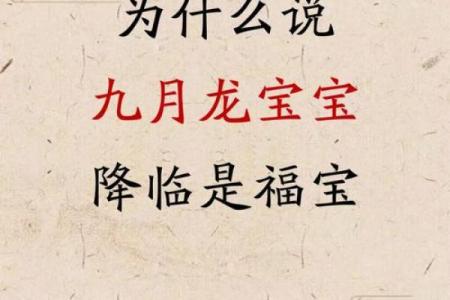 为什么说
九月龙宝宝
降临是福宝